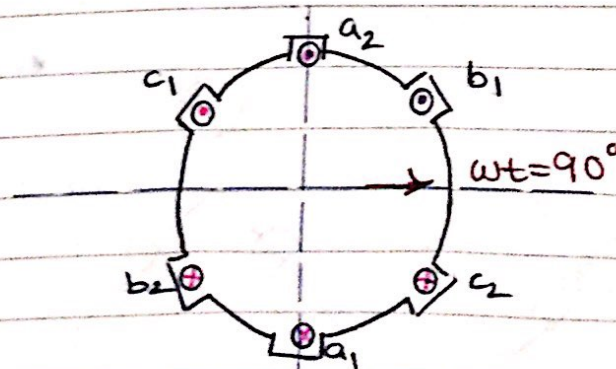 a₂
c₁
b₁
ωt=90°
b₂
c₂
a₁